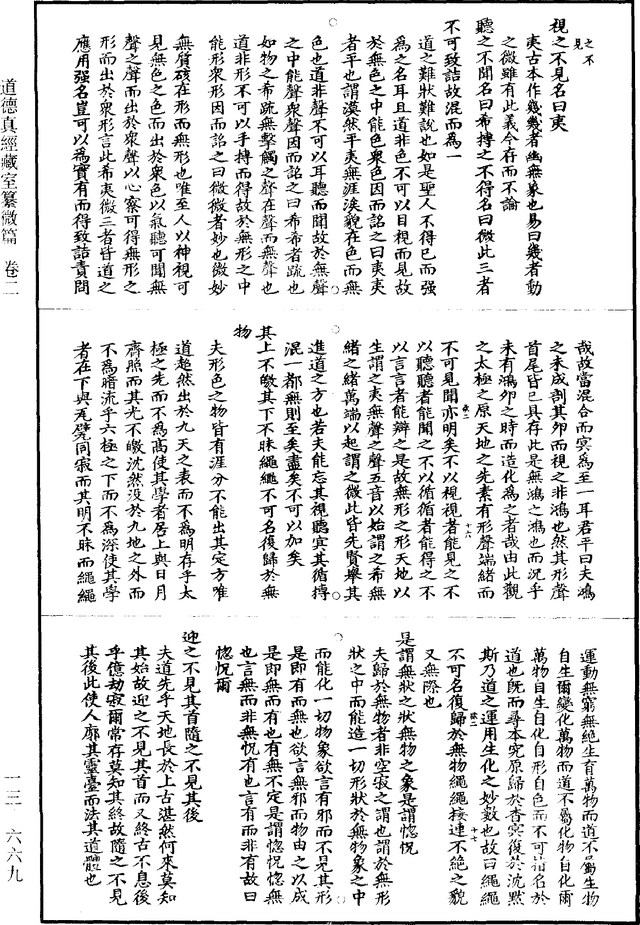 視之不見名曰夷
夷古本作幾幾者幽無象也易曰幾者動
之微雖有此義今存而不論
聽之不聞名曰希搏之不得名曰微此三者
不可致詰故混而為一
道之難狀難說也如是聖人不得已而强
為之名耳且道非色不可以目視而見故
於無色之中能色衆色因而詺之曰夷夷
者平也謂漠然平夷無涯涘貌在色而無
色也道非聲不可以耳聽而聞故於無聲
之中能聲衆聲因而詺之曰希希者疏也
如物之希疏無擊觸之聲在聲而無聲也
道非形不可以手搏而得故於無形之中
能形衆形因而詺之曰微微者妙也微妙
無質礙在形而無形也唯至人以神視可
見無色之色而出於衆色以氣聽可聞無
聲之聲而出於衆聲以心察可得無形之
形而出於衆形言此希夷微三者皆道之
應用强名豈可以為實有而得致詰責問
哉故當混合而冥為至一耳君平曰夫鴻
之未成剖其夘而視之非鴻也然其形聲
首尾皆已具存此是無鴻之鴻也而況乎
未有鴻夘之時而造化為之者哉由此觀
之太極之原天地之先素有形聲端緒而
不可見聞亦明矣不以視視者能見之不
以聽聽者能聞之不以循循者能得之不
以言言者能辯之是故無形之形天地以
生謂之夷無聲之聲五音以始謂之希無
緒之緒萬端以起謂之微此皆先賢舉其
進道之方也若夫能忘其視聽冥其循搏
混一都無則至矣盡矣不可以加矣
其上不皦其下不昧繩繩不可名復歸於無
物
夫形色之物皆有涯分不能出其定方唯
道超然出於九天之表而不為明存乎太
極之先而不為高使其學者居上與日月
齊照而其光不皦沈然没於九地之外而
不為暗流乎六極之下而不為深使其學
者在下與瓦甓同寂而其明不昧而繩繩
運動無窮無絶生育萬物而道不屬生物
自生爾變化萬物而道不屬化物自化爾
萬物自生自化自形自色而不可指名於
道也旣而尋本究原歸於杳冥復於沈默
斯乃道之運用生化之妙數也故曰繩繩
不可名復歸於無物繩繩接連不絶之貌
又無際也
是謂無狀之狀無物之象是謂惚怳
夫歸於無物者非空寂之謂也謂於無形
狀之中而能造一切形狀於無物象之中
而能化一切物象欲言有邪而不見其形
是即有而無也欲言無邪而物由之以成
是即無而有也有無不定是謂惚怳惚無
也言無而非無怳有也言有而非有故曰
惚怳爾
迎之不見其首隨之不見其後
夫道先乎天地長於上古湛然何來莫知
其始故迎之不見其首而又終古不息後
乎億劫寂爾常存莫知其終故隨之不見
其後此使人廓其靈臺而法其道體也
道德真經藏室纂微篇　卷二
一三—六六九